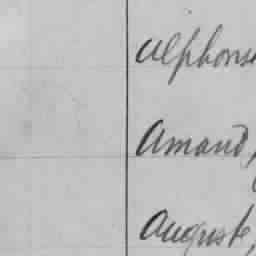 Alphonse
Amand,
Auguste,